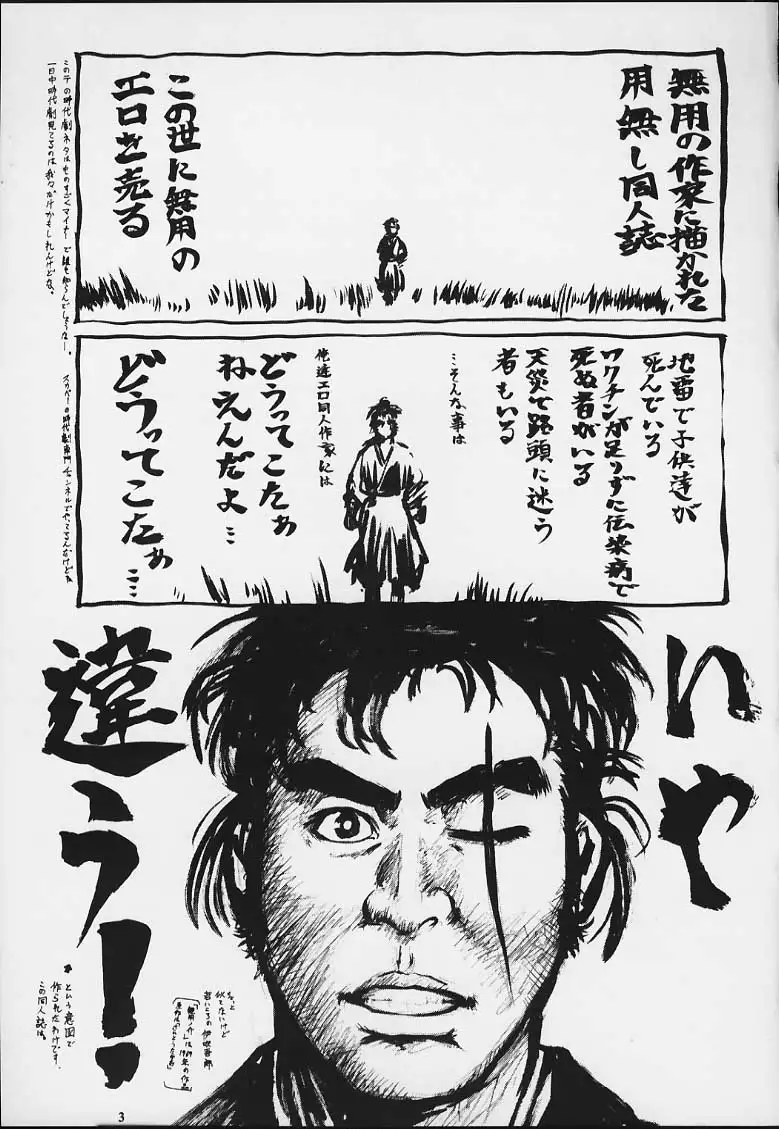 無用の作家に描かれた
用無し同人誌
この世に無用の
エロを売る
この手の時代劇ネタはものすごくマイナーで誰も知らんでしょうなー。
一日中時代劇見てるのは我々だけかもしれんけどな。
地雷で子供達が
死んでいる
ワクチンが足りずに伝染病で
死ぬ者がいる
天災で路頭に迷う
者もいる
…そんな事は
俺達エロ同人作家には
どうってこたぁ
ねえんだよ…
どうってこたぁ……
スカパーの時代劇専門チャンネルでやってるんだけどね
いや
違う!
ちょっと
似てないけど
若いころの伊吹吾郎
「無用ノ介」は1969年の作品
という意図で
作られたわけです、
この同人誌は。
3